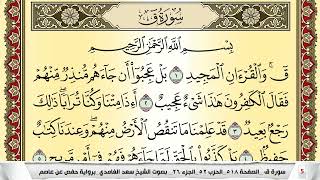 سُورَةُ ق
بِسْمِ اللَّهِ الرَّحْمَٰنِ الرَّحِيمِ
قٓ ۚ وَالْقُرْءَانِ الْمَجِيدِ ١ بَلْ عَجِبُوٓا۟ أَن جَآءَهُم مُّنذِرٌ مِّنْهُمْ
فَقَالَ الْكَٰفِرُونَ هَٰذَا شَىْءٌ عَجِيبٌ ٢ أَءِذَا مِتْنَا وَكُنَّا تُرَابًا ۖ ذَٰلِكَ
رَجْعٌۢ بَعِيدٌ ٣ قَدْ عَلِمْنَا مَا تَنقُصُ الْأَرْضُ مِنْهُمْ ۖ وَعِندَنَا كِتَٰبٌ
حَفِيظٌۢ ٤ بَلْ كَذَّبُوا۟ بِالْحَقِّ لَمَّا جَآءَهُمْ فَهُمْ فِىٓ أَمْرٍ مَّرِيجٍ ٥
سورة ق - الصفحة ٥١٨ - الحزب ٥٢ - الجزء ٢٦ - بصوت الشيخ سعد الغامدي - برواية حفص عن عاصم